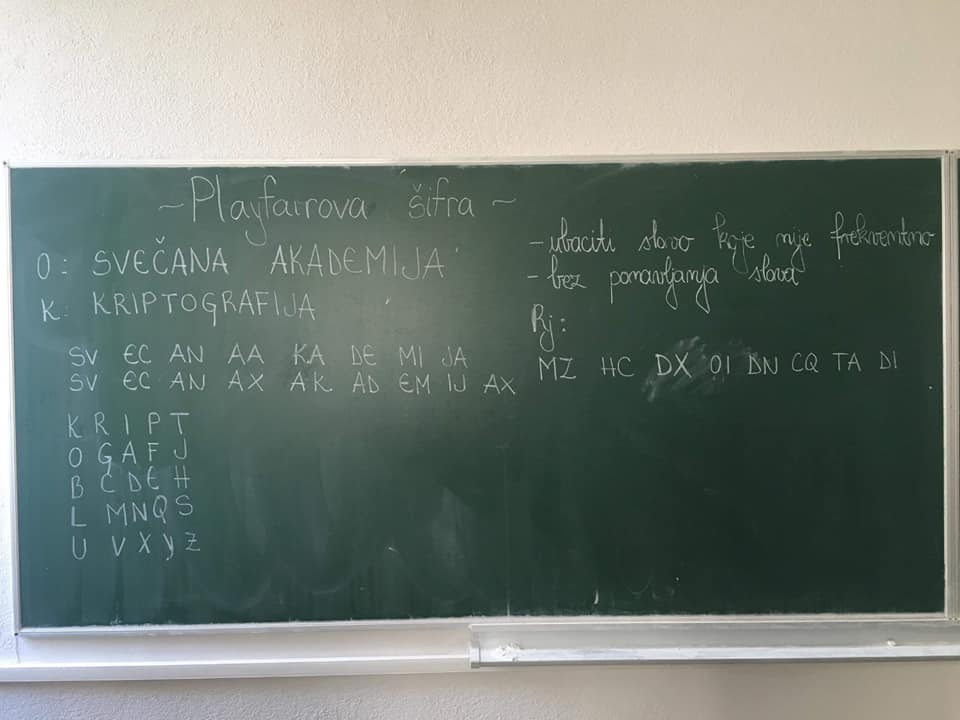 ~ Playfairova šifra ~
O: SVEČANA AKADEMIJA
K: KRIPTOGRAFIJA
SV EC AN AA KA DE MI JA
SV EC AN AX AK AD EM IJ AX
K R I P T
O G A F J
B C D E H
L M N Q S
U V X Y Z
- ubaciti slovo koje nije frekventno
- bez ponavljanja slova
Rj:
MZ HC DX OI DN CQ TA DI